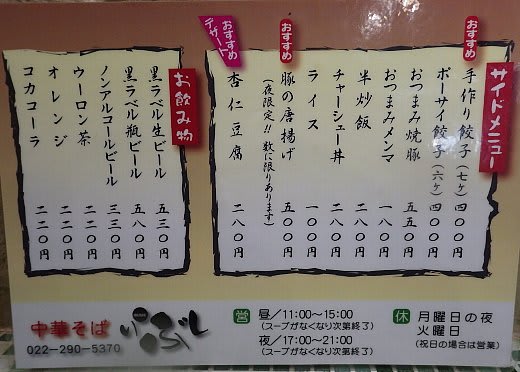 サイドメニュー
おすすめ
手作り餃子(七ヶ) 四〇〇円
ポーサイ餃子(六ヶ) 四〇〇円
おつまみ焼豚 五五〇円
おつまみメンマ 一八〇円
半炒飯 二八〇円
チャーシュー丼 二八〇円
ライス 一〇〇円
おすすめ
豚の唐揚げ 五〇〇円
(夜限定!! 数に限りあります)
おすすめ
デザート
杏仁豆腐 二八〇円
お飲み物
黒ラベル生ビール 五三〇円
黒ラベル瓶ビール 五八〇円
ノンアルコールビール 三三〇円
ウーロン茶 二二〇円
オレンジ 二二〇円
コカコーラ 二二〇円
中華そば いぶし
022-290-5370
営 昼/11:00~15:00
(スープがなくなり次第終了)
夜/17:00~21:00
(スープがなくなり次第終了)
休 月曜日の夜
火曜日
(祝日の場合は営業)